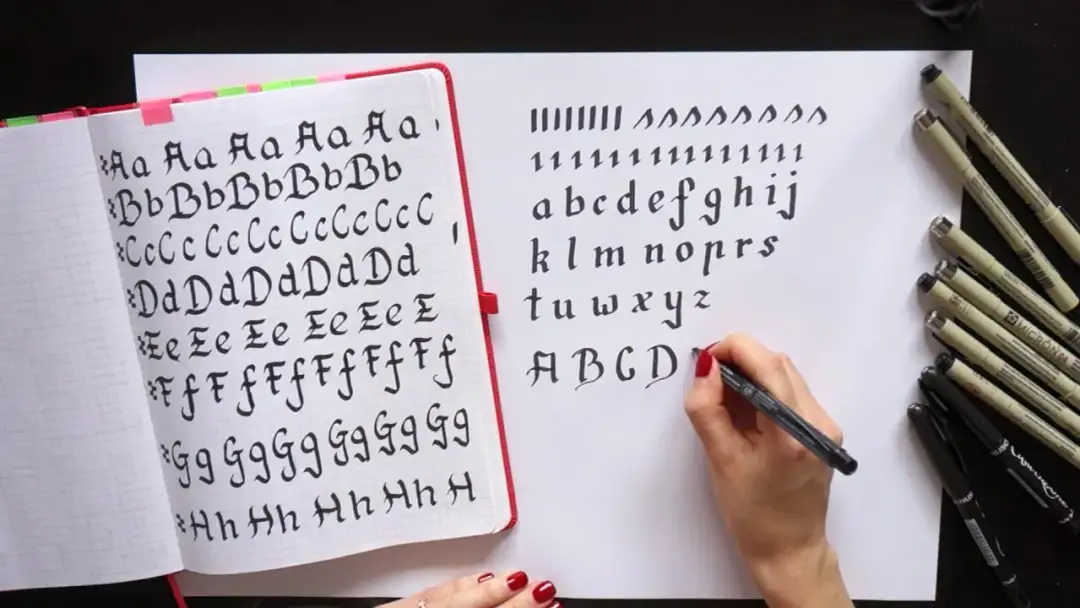 Aa Aa Aa Aa Aa
Bb Bb Bb Bb Bb
Cc Cc Cc Cc Cc Cc Cc C
Dd Dd Dd Dd Dd
Ee Ee Ee Ee Ee E
Ff Ff Ff Ff Ff
Gg Gg Gg Gg Gg Gg
Hh Hh Hh Hh H
a b c d e f g h i j
k l m n o p r s
t u w x y z
A B C D
MICRON